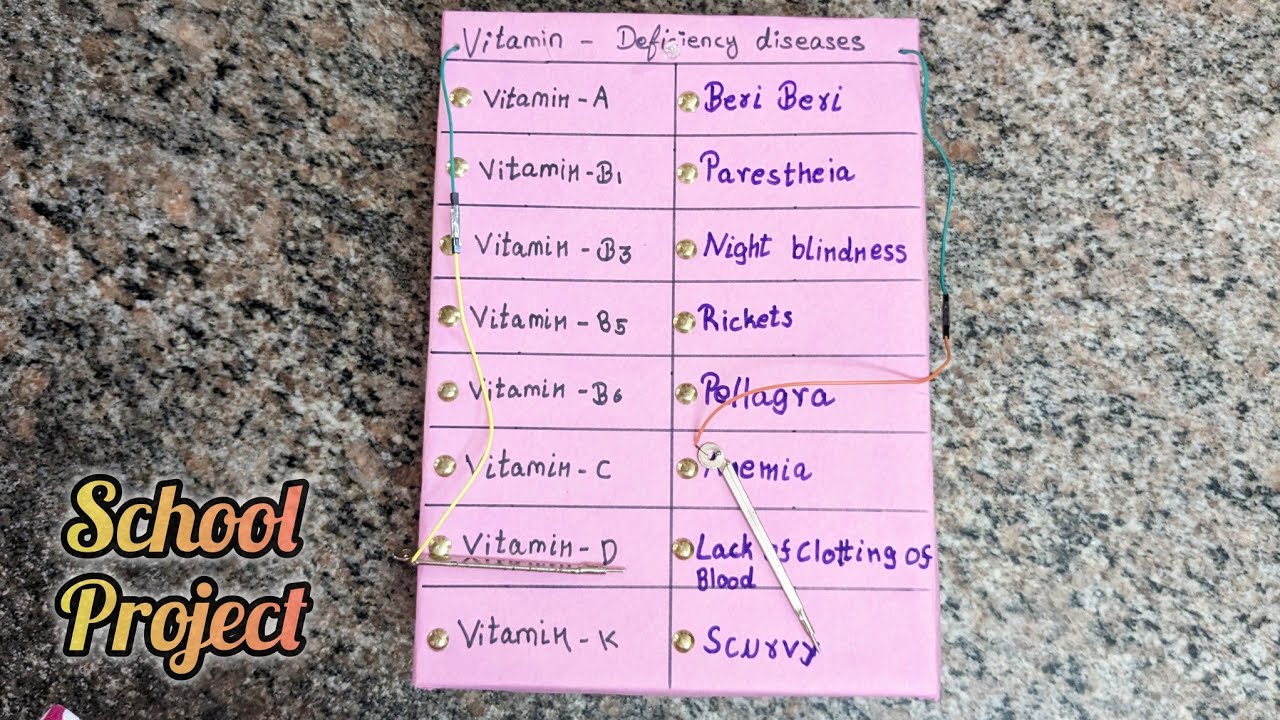 Vitamin - Deficiency diseases
Vitamin - A Beri Beri
Vitamin - B1 Parestheia
Vitamin - B3 Night blindness
Vitamin - B5 Rickets
Vitamin - B6 Pellagra
Vitamin - C Anemia
Vitamin - D Lack of Clotting of
Blood
Vitamin - K Scurvy
School
Project